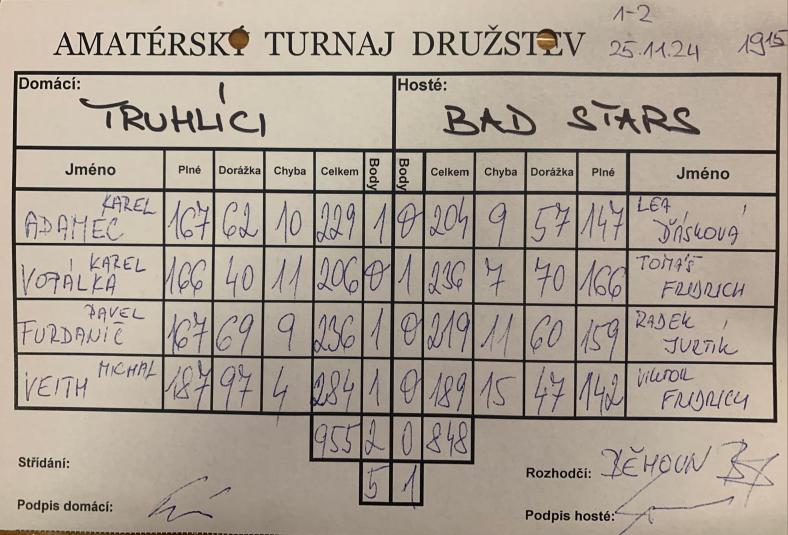 1-2
AMATÉRSKÝ TURNAJ DRUŽSTEV 25.11.24 19¹⁵
Domácí: TRUHLÍCI Hosté: BAD STARS
Jméno Plné Dorážka Chyba Celkem Body Body Celkem Chyba Dorážka Plné Jméno
ADAMEC KAREL 167 62 10 229 1 0 204 9 57 147 LEA DŘÍSKOVÁ
VOTÁLKA KAREL 166 40 11 206 0 1 236 7 70 166 TOMÁŠ FRIDRICH
FURDANIČ PAVEL 167 69 9 236 1 0 219 11 60 159 RADEK JURTÍK
VEITH MICHAL 187 97 4 284 1 0 189 15 47 142 VIKTOR FRIDRICH
955 2 0 848
Střídání: 5 1 Rozhodčí: BĚHOUN
Podpis domácí: Podpis hosté: